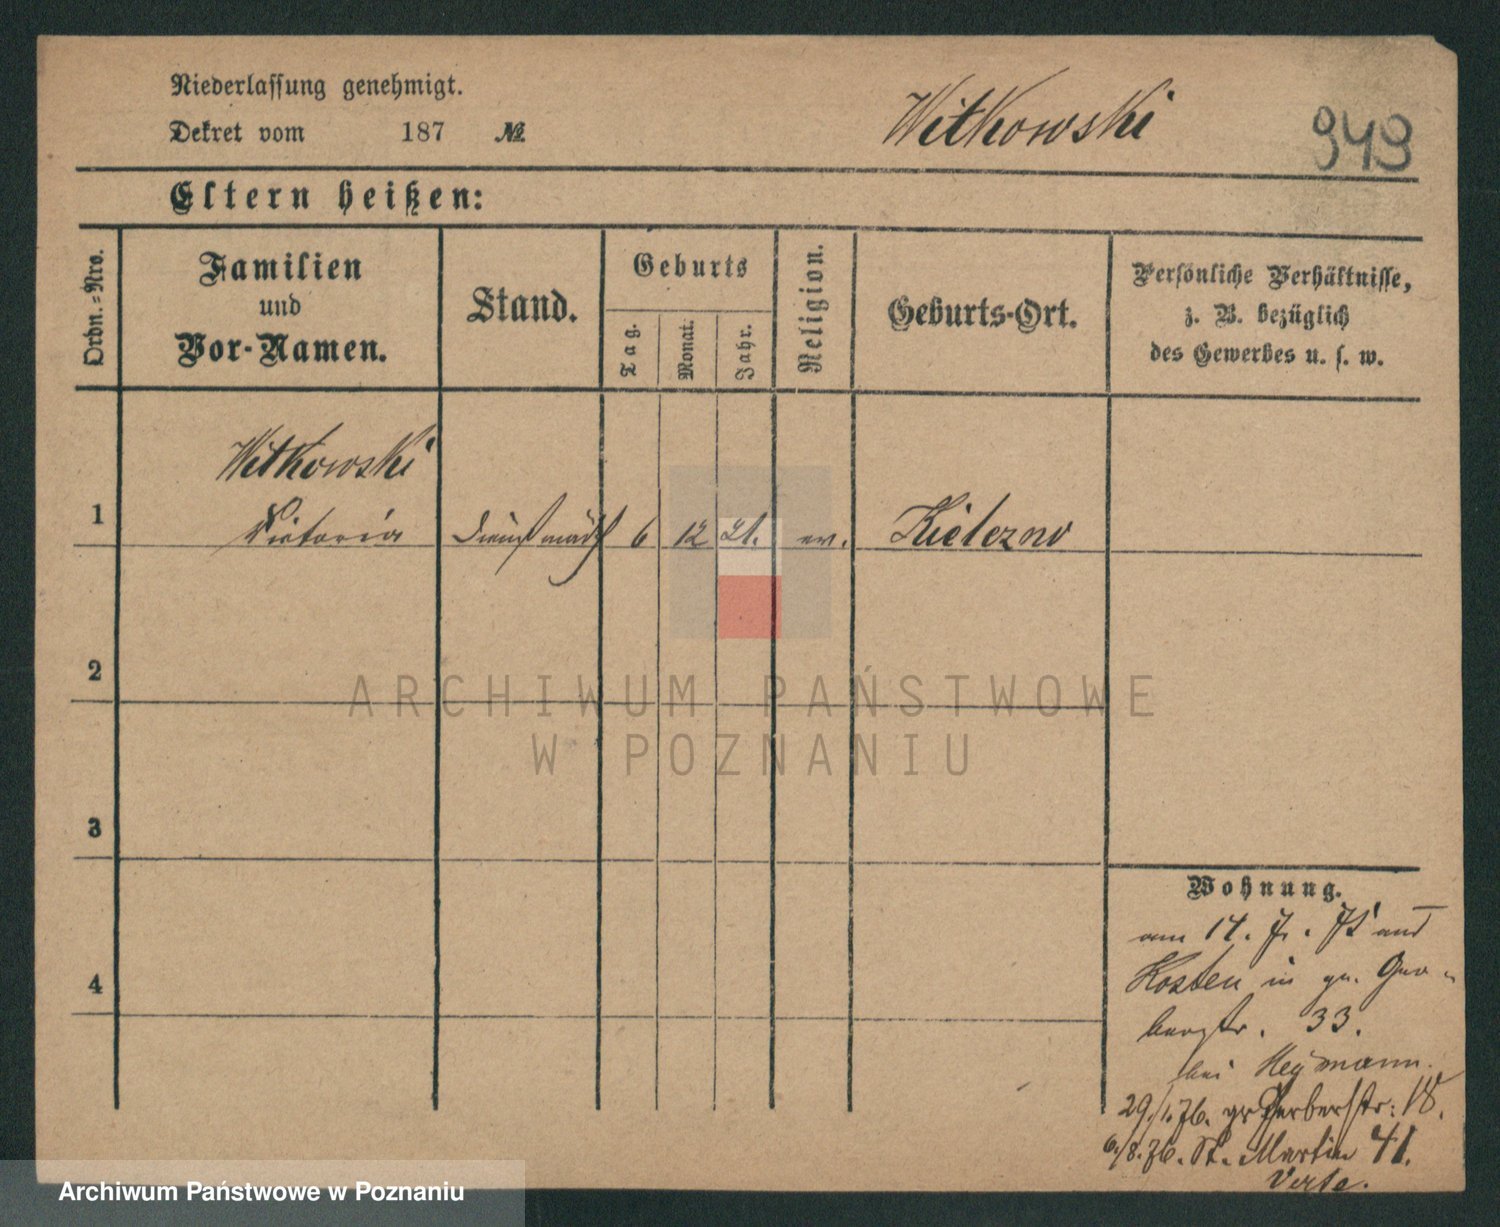 Niederlassung genehmigt.
Dekret vom 187 №
Witkowski
949
Eltern heißen:
Ordn.-Nro.
Familien
und
Vor-Namen.
Stand.
Geburts
Tag.
Monat.
Jahr.
Religion.
Geburts-Ort.
Persönliche Verhältnisse,
z. B. bezüglich
des Gewerbes u. s. w.
Witkowski
1 Victoria Dienstmädch 6 12 21. ev. Kielczno
2
3
4
ARCHIWUM PAŃSTWOWE
W POZNANIU
Wohnung.
am 14. 7. 75 aus
Kosten in gr. Ger-
berstr. 33.
bei Heymann.
29./1.76. gr Gerberstr: 18.
6./8.76. St. Martin 41.
Verte.
Archiwum Państwowe w Poznaniu